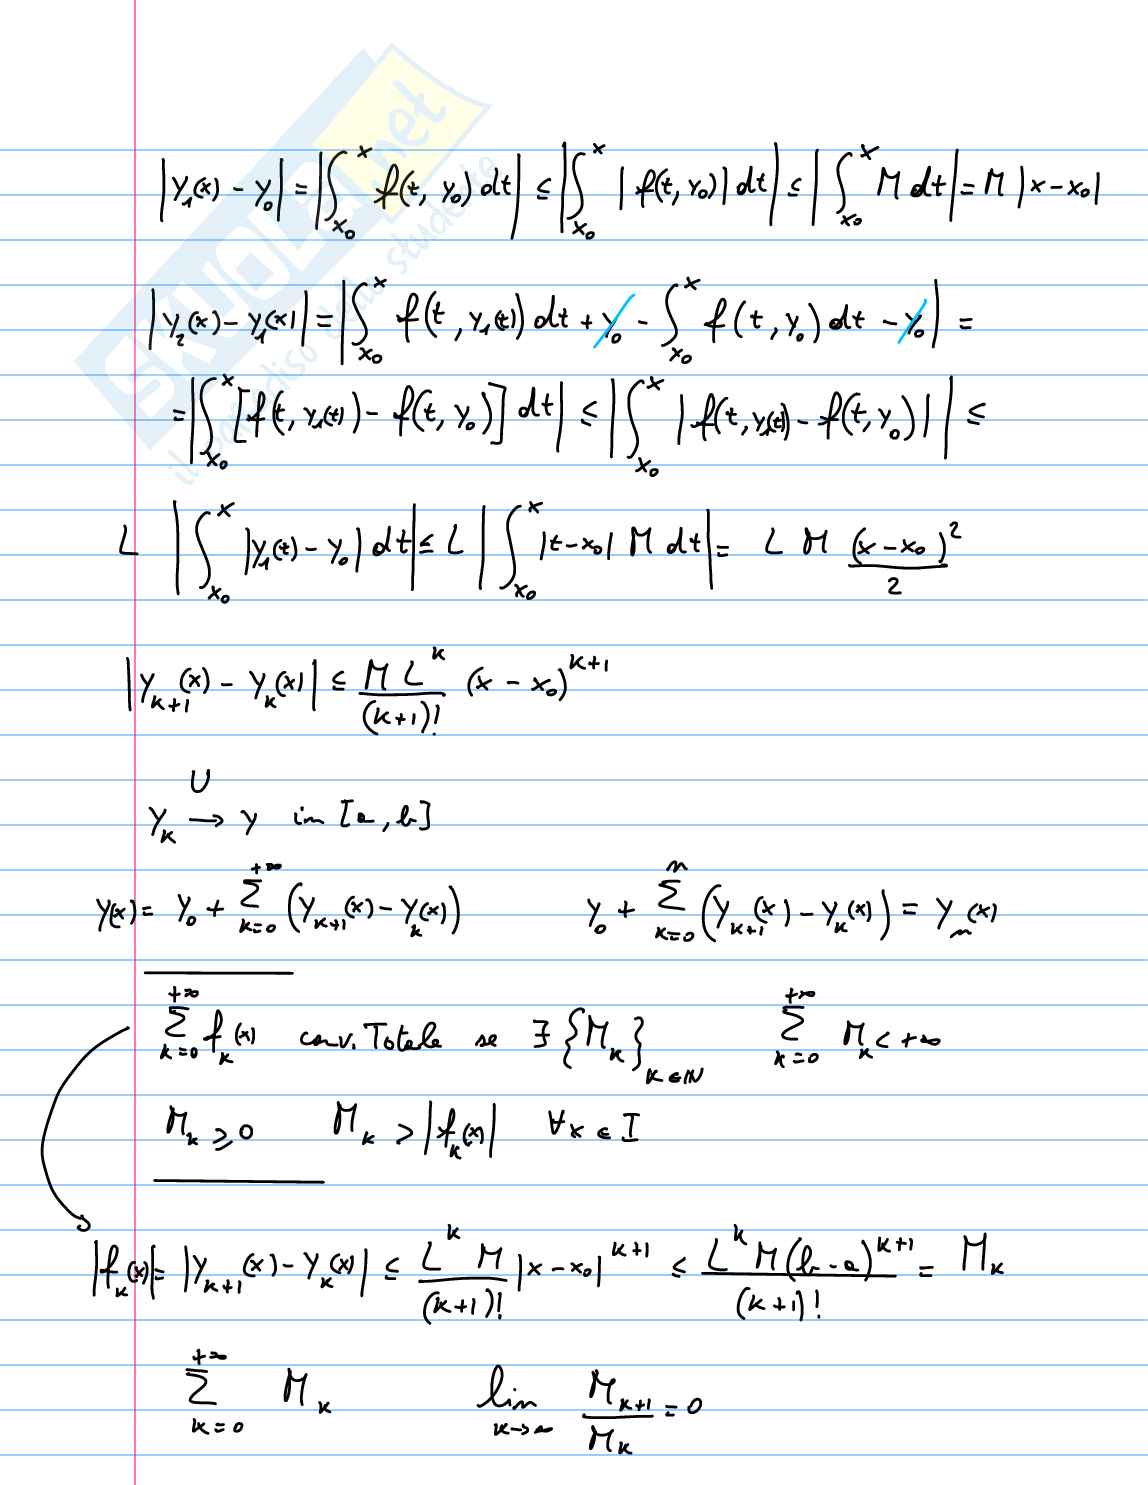 SKUOLA.net
il paradiso dello studente
|y₁(x) - y₀| = |∫_{x₀}^{x} f(t, y₀) dt| ≤ |∫_{x₀}^{x} |f(t, y₀)| dt| ≤ |∫_{x₀}^{x} M dt| = M |x - x₀|
|y₂(x) - y₁(x)| = |∫_{x₀}^{x} f(t, y₁(t)) dt + y₀ - ∫_{x₀}^{x} f(t, y₀) dt - y₀| =
= |∫_{x₀}^{x} [f(t, y₁(t)) - f(t, y₀)] dt| ≤ |∫_{x₀}^{x} |f(t, y₁(t)) - f(t, y₀)| | ≤
L |∫_{x₀}^{x} |y₁(t) - y₀| dt| ≤ L |∫_{x₀}^{x} |t - x₀| M dt| = L M (x - x₀)²/2
|y_{k+1}(x) - y_k(x)| ≤ M L^k/(k+1)! (x - x₀)^{k+1}
y_k →^U y in [a, b]
y(x) = y₀ + Σ_{k=0}^{+∞} (y_{k+1}(x) - y_k(x)) y₀ + Σ_{k=0}^{n} (y_{k+1}(x) - y_k(x)) = y_n(x)
Σ_{k=0}^{+∞} f_k(x) conv. Totale se ∃ {M_k}_{k∈ℕ} Σ_{k=0}^{+∞} M_k < +∞
M_k ≥ 0 M_k > |f_k(x)| ∀x ∈ I
|f_k(x)| = |y_{k+1}(x) - y_k(x)| ≤ L^k M/(k+1)! |x - x₀|^{k+1} ≤ L^k M (b - a)^{k+1}/(k+1)! = M_k
Σ_{k=0}^{+∞} M_k lim_{k→∞} M_{k+1}/M_k = 0